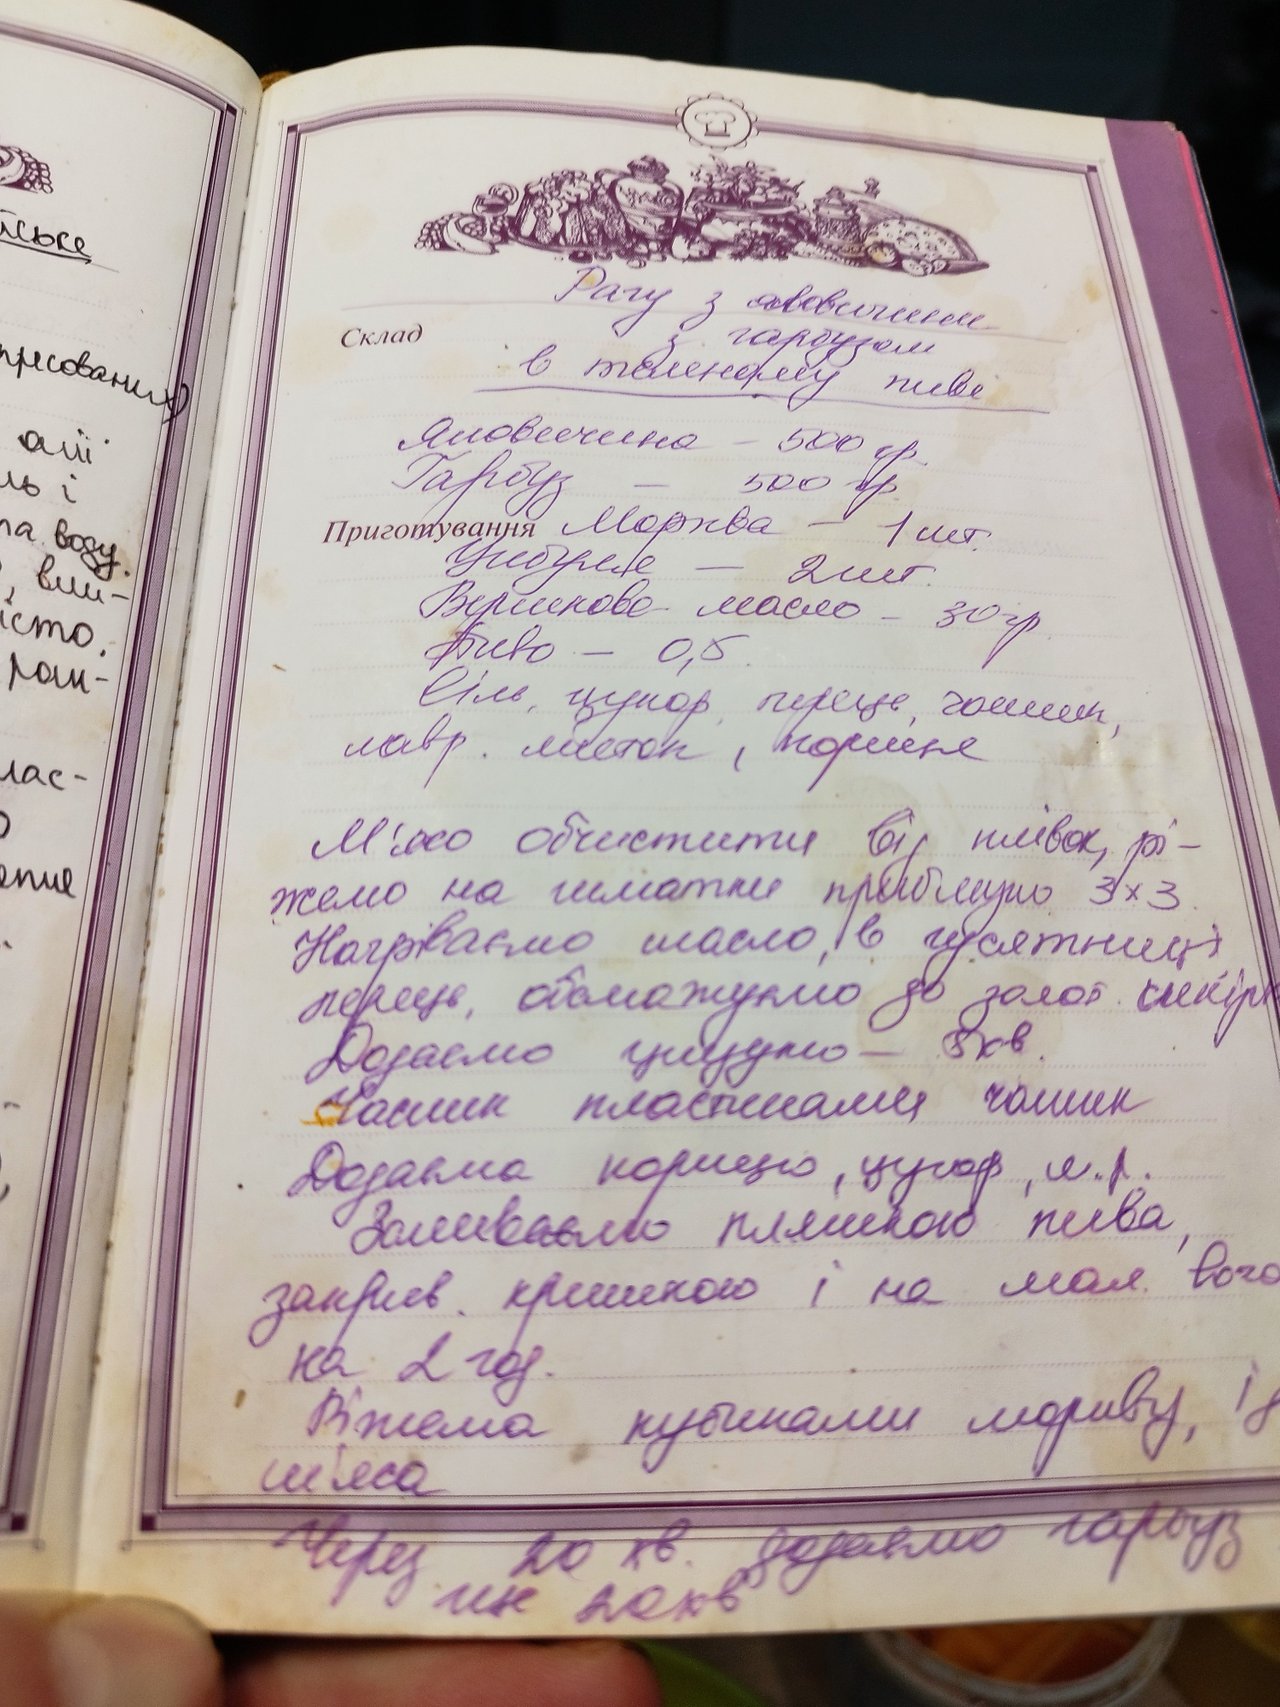 тське
пресований
олії
ль і
та воду.
, вим-
місто.
рам-
мас-
Рагу з яловичини
Склад
з гарбузом
в темному пиві
Яловичина – 500 гр.
Гарбуз – 500 гр.
Приготування Морква – 1 шт.
Цибуля – 2 шт.
Вершкове масло – 30 гр
Пиво – 0,5.
Сіль, цукор, перець, часник,
лавр. листок, кориця
М'ясо обчистити від плівок, рі-
жемо на шматки приблизно 3×3.
Нагріваємо масло, в гусятниці
перець, обсмажуємо до золот. скирк
Додаємо цибулю – 5 хв.
Часник пластинами часник
Додаємо корицю, цукор, л.р.
Заливаємо пляшкою пива,
закрив. кришкою і на мал. вого
на 2 год.
Ріжемо кубиками моркву, і д
м'яса
Через 20 хв. додаємо гарбуз
ще 20 хв